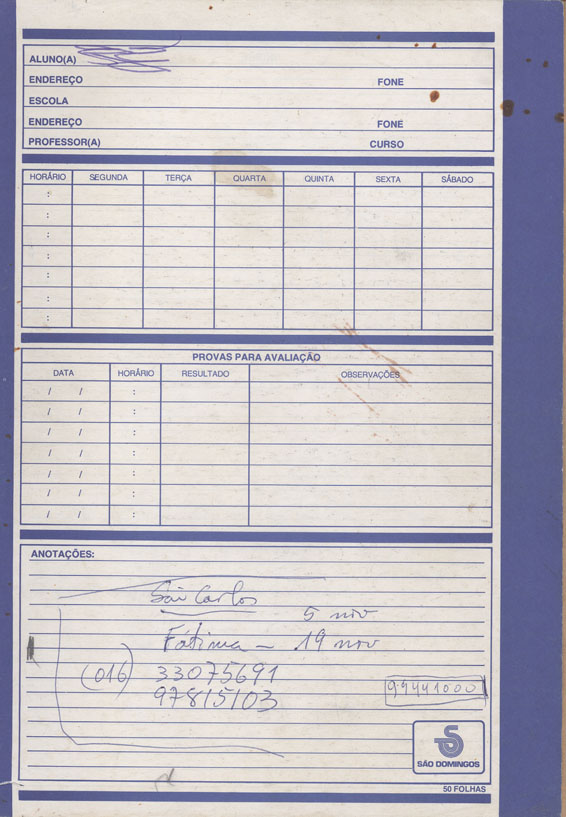 ALUNO(A)
ENDEREÇO FONE
ESCOLA
ENDEREÇO FONE
PROFESSOR(A) CURSO
HORÁRIO SEGUNDA TERÇA QUARTA QUINTA SEXTA SÁBADO
:
:
:
:
:
:
:
PROVAS PARA AVALIAÇÃO
DATA HORÁRIO RESULTADO OBSERVAÇÕES
/ / :
/ / :
/ / :
/ / :
/ / :
/ / :
/ / :
ANOTAÇÕES:
São Carlos
5 nov
Fátima - 19 nov
(016) 33075691
97815103
99441000
SÃO DOMINGOS
50 FOLHAS